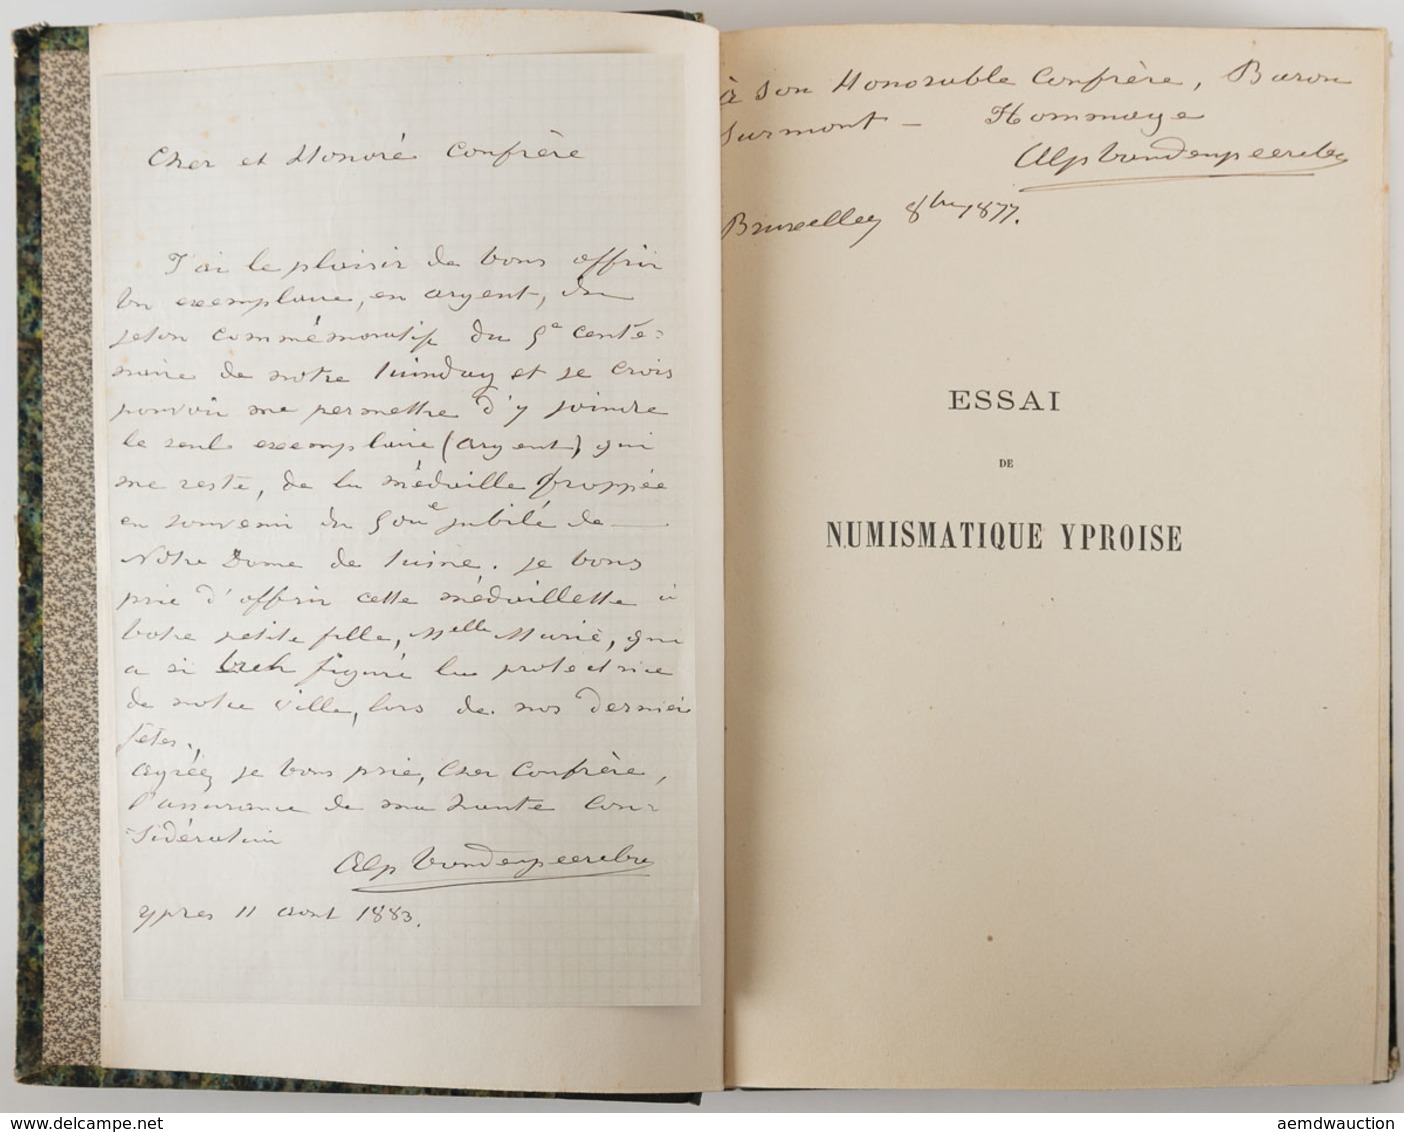 Cher et Honoré Confrère
J'ai le plaisir de vous offrir
un exemplaire, en argent, du
jeton commémoratif du 5e cente=
naire de notre Tuindag et je crois
pouvoir me permettre d'y joindre
le seul exemplaire (argent) qui
me reste, de la médaille frappée
en souvenir du 500e jubilé de
Notre Dame de Tuine. je vous
prie d'offrir cette médaillette à
votre petite fille, Melle Marie, qui
a si bien figuré la protectrice
de notre ville, lors de nos dernières
fêtes.
Agréez je vous prie, Cher Confrère,
l'assurance de ma haute Con=
sidération
Alp Vandenpeereboom
Ypres 11 Août 1883.
à son Honorable Confrère, Baron
Surmont — Hommage
Alp Vandenpeereboom
Bruxelles 8bre 1877.
ESSAI
DE
NUMISMATIQUE YPROISE
www.delcampe.net
aemdwauction